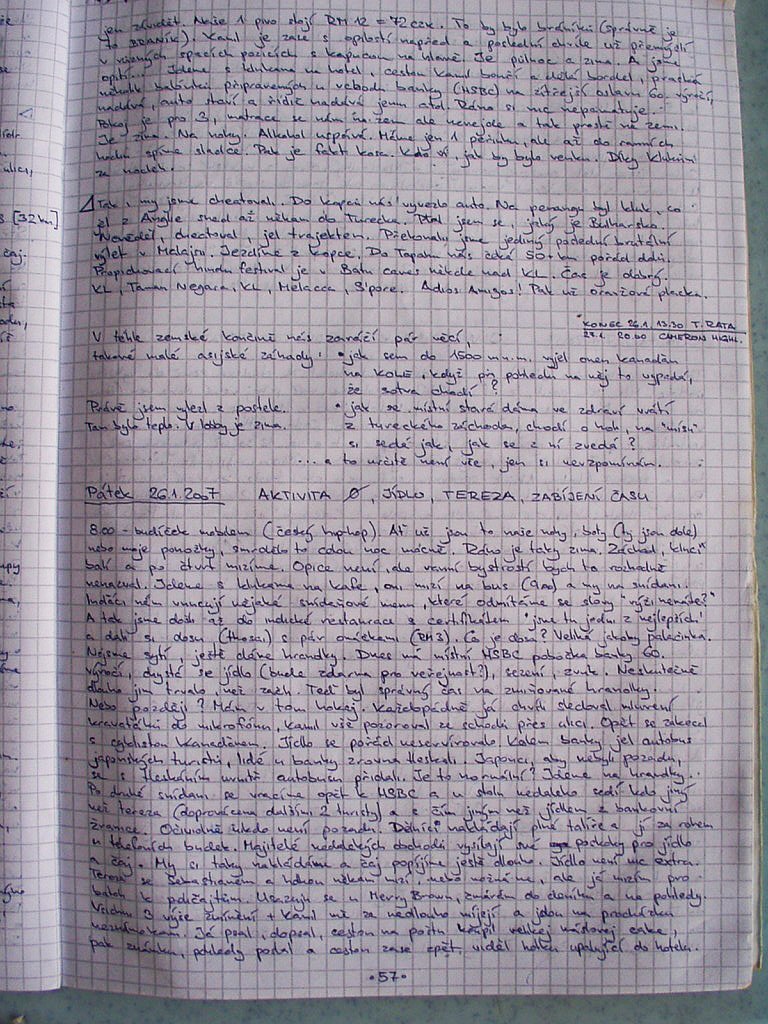 jen závidět. Naše 1 pivo stojí RM 12 = 72 czk. To by bylo braníků (správně je
to BRANÍK). Kamil je zase s opilostí napřed a poslední chvíle už přemýšlí
v různých spacích pozicích s kapucou na hlavě. Je půlnoc a zima. A jsme
opilí... Jdeme s klukama na hotel, cestou Kamil bončí a dělá bordel, praská
několik balónků připravených u vchodu banky (HSBC) na zítřejší oslavu 60. výročí,
nadává, auto stojí a řidič nadává jemu atd. Ráno si nic nepamatuje.
Pokoj je pro 3, matrace se nám na zem ale nevejde a tak prostě na zemi.
Je zima. Na nohy. Alkohol uspává. Máme jen 1 peřinku, ale až do ranních
hodin spíme sladce. Pak je fakt kosa. Kdo ví, jak by bylo venku. Díky klukům
za nocleh.
Tak, my jsme cheatovali. Do kopců nás vyvezlo auto. Na penangu byl kluk, co
jel z Anglie snad až někam do Turecka. Ptal jsem se, jaký je Bulharsko.
Nevěděl, cheatoval, jel trajektem. Překonali jsme jediný poslední brutální
výlet v Malajsii. Jezdíme z kopce. Do Tapahu nás čeká 50+ km pořád dolů.
Propichovací hindu festival je v Batu caves někde nad KL. Čas je dobrý.
KL, Taman Negara, KL, Melacca, S'pore. Adios Amigos! Pak už oranžová placka.
KONEC 26.1. 13:30 T. RATA
27.1. 20:00 CAMERON HIGHL.
V téhle zemské končině nás zaráží pár věcí,
takové malé asijské záhady: • jak sem do 1500 m.n.m. vyjel onen kanaďan
na kole, když při pohledu na něj to vypadá,
že sotva chodí?
Právě jsem vylezl z postele. • jak se místní stará dáma ve zdraví vrátí
Tam bylo teplo. V lobby je zima. z tureckého záchodu, chodí o holi, na "mísu"
si sedá jak, jak se z ní zvedá?
... a to určitě není vše, jen si nevzpomínám.
Pátek 26.1.2007 AKTIVITA Ø, JÍDLO, TEREZA, ZABÍJENÍ ČASU
8:00 - budíček mobilem (český hiphop). Ať už jsou to naše nohy, boty (ty jsou dole)
nebo moje ponožky, smrdělo to celou noc mocně. Ráno je taky zima. Záchod, kluci
balí a po čtvrt mizíme. Opice není, ale ranní bystrostí bych to rozhodně
nenazval. Jdeme s klukama na kafe, oni mizí na bus (9AM) a my na snídani.
Indáči nám vnucují nějaké snídaňové menu, které odmítáme se slovy "rýži nemáte?"
A tak jsme došli až do indické restaurace s certifikátem "jsme tu jedni z nejlepších"
a dali si dosu (thosai) s pár omáčkami (RM3). Co je dosa? Velká jakoby palačinka.
Nejsme sytí, ještě dáme hranolky. Dnes má místní HSBC pobočka banky 60.
výročí, chystá se jídlo (bude zdarma pro veřejnost?), sezení, zvuk. Neskutečně
dlouho jim trvalo, než zač. Teď byl správný čas na zmiňované hranolky.
Nebo později? Mám v tom hokej. Každopádně já chvíli sledoval mluvení
kravaťáků do mikrofónu, Kamil vše pozoroval ze schodů přes ulici. Opět se zakecal
s cyklistou Kanaďanem. Jídlo se pořád neservírovalo. Kolem banky jel autobus
japonských turistů, lidé u banky zrovna tleskali. Japonci, aby nebyli pozadu,
se s tleskáním uvnitř autobusu přidali. Je to normální? Jdeme na hranolky.
Po druhé snídani se vracíme opět k HSBC a u stolu nedaleko sedí kdo jiný
než tereza (doprovázena dalšími 2 turisty) a s čím jiným než jídlem z bankovní
žranice. Očividně nikdo není pozadu. Dělníci nakládají plné talíře a jí za rohem
u telefonních budek. Majitelé nedalekých obchodů vysílají své poskoky pro jídlo
a čaj. My si taky nakládáme a čaj popíjíme ještě dlouho. Jídlo není nic extra.
Tereza se Sebastianem a holkou někam mizí, nebo možná ne, ale já mizím pro
batoh k policajtům. Usazuji se u Merry Brown, čmárám do deníku a na pohledy.
Všichni 3 výše zmínění + Kamil mě za nedlouho míjejí a jdou na procházku
neznámo kam. Já psal, dopsal, cestou na poštu koupil velkej mátovej cake,
pak známku, pohledy poslal a cestou zase zpět, viděl holku upalující do hotelu.
• 57 •
[32 km]
čaj.